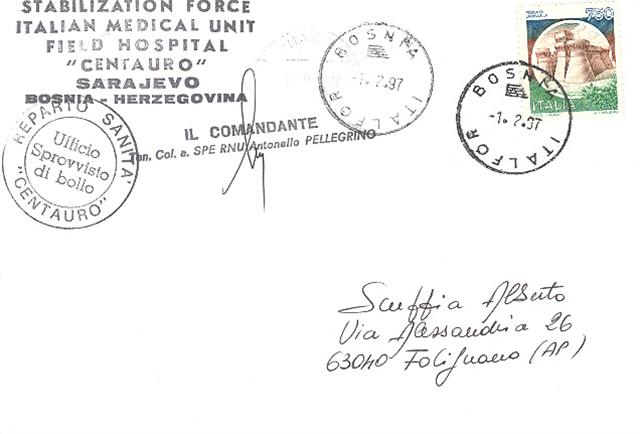 STABILIZATION FORCE
ITALIAN MEDICAL UNIT
FIELD HOSPITAL
"CENTAURO"
SARAJEVO
BOSNIA - HERZEGOVINA
REPARTO SANITA'
"CENTAURO"
Ufficio
Sprovvisto
di bollo
IL COMANDANTE
Ten. Col. a. SPE RNU Antonello PELLEGRINO
ITALFOR BOSNIA
-1. 2.97
750
ITALIA
ITALFOR BOSNIA
-1. 2.97
Via Alessandria 26
63040 Folignano (AP)